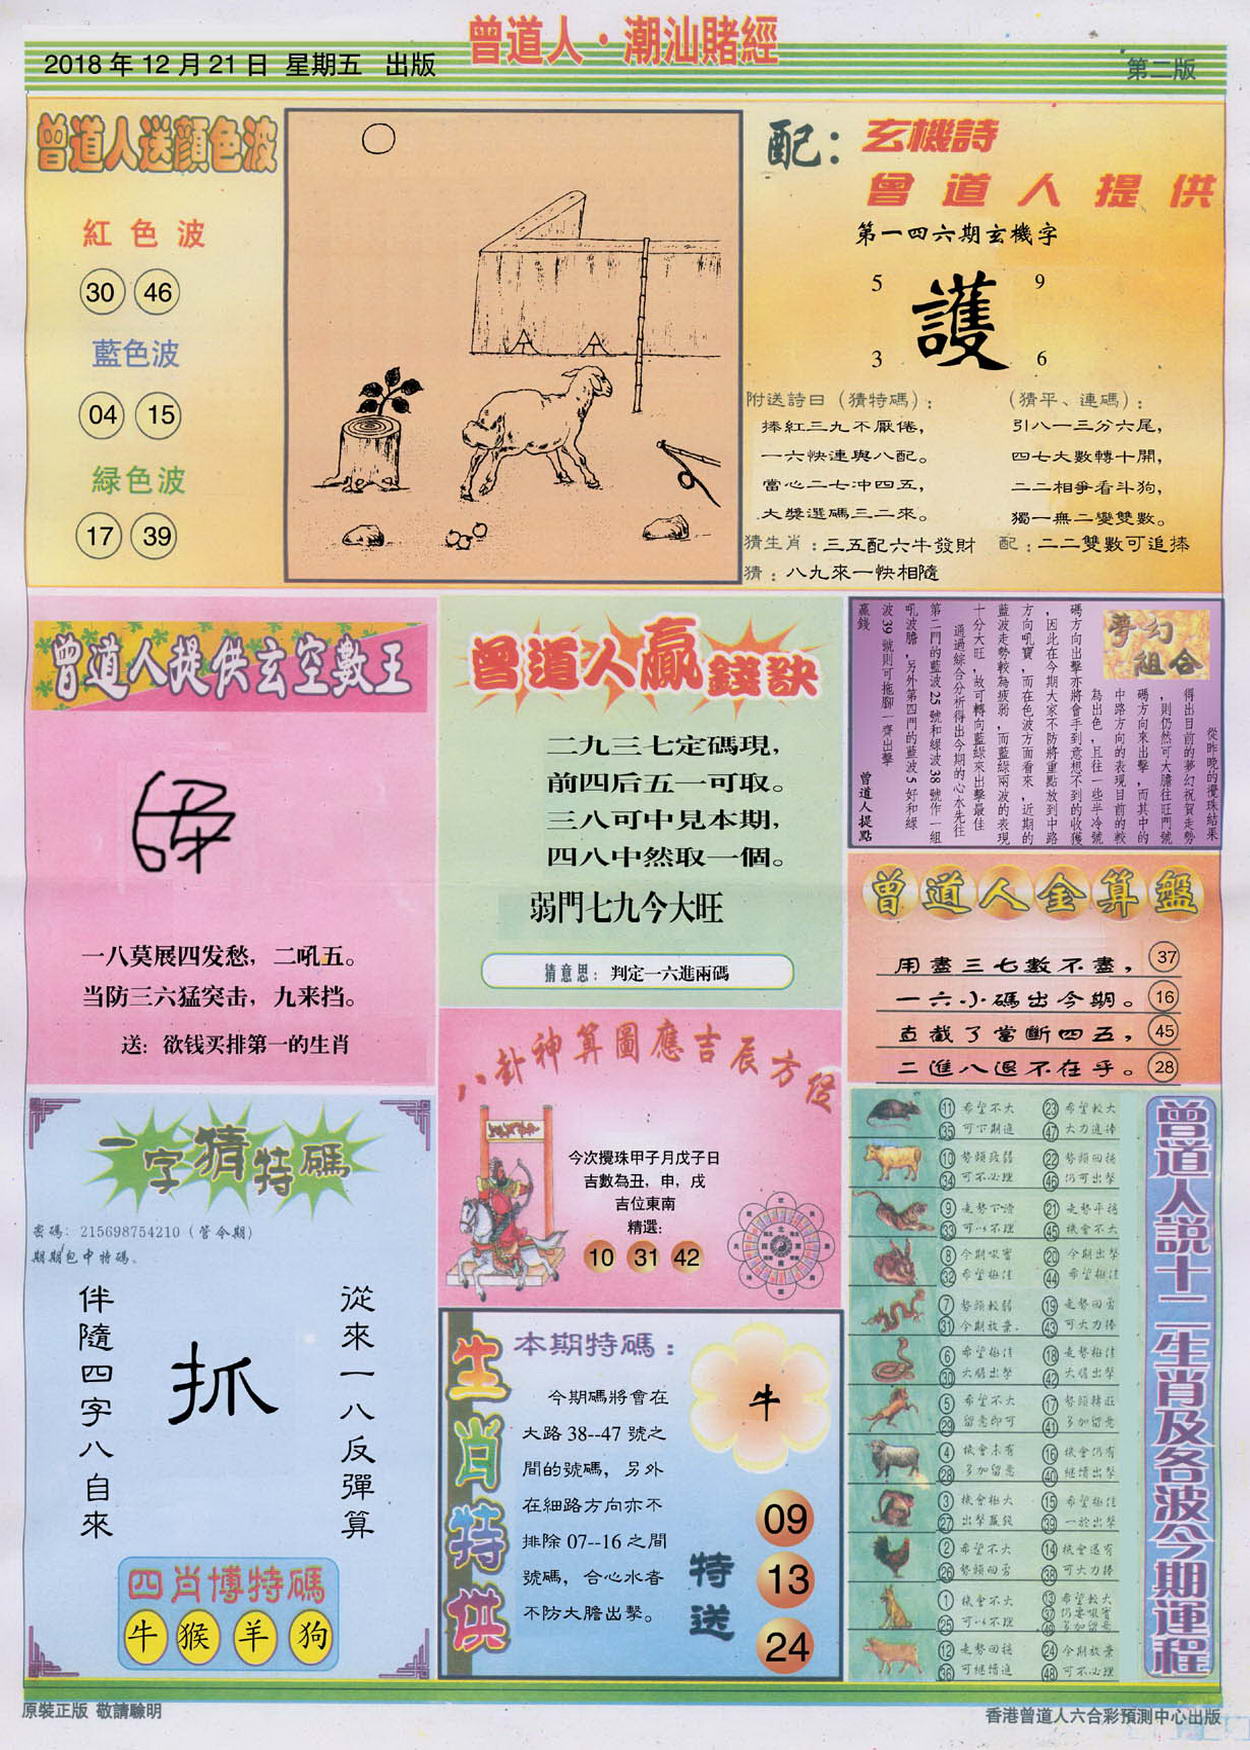 曾道人·潮汕賭經
2018 年 12 月 21 日 星期五 出版
第二版
曾道人送顔色波
紅色波
30 46
藍色波
04 15
緑色波
17 39
配：玄機詩
曾道人提供
第一四六期玄機字
5 9
護
3 6
附送詩曰（猜特碼）：
捧紅三九不厭倦，
一六快連與八配。
當心二七冲四五，
大獎選碼三二來。
（猜平、連碼）：
引八一三分六尾，
四七大數轉十開，
二二相爭看斗狗，
獨一無二變雙數。
猜生肖：三五配六牛發財
配：二二雙數可追捧
猜：八九來一快相隨
曾道人提供玄空數王
一八莫展四发愁，二吼五。
当防三六猛突击，九来挡。
送：欲钱买排第一的生肖
曾道人贏錢訣
二九三七定碼現，
前四后五一可取。
三八可中見本期，
四八中然取一個。
弱門七九今大旺
猜意思：判定一六進兩碼
夢幻
組合
從昨晚的攪珠結果
得出目前的夢幻祝賀走勢
，則仍然可大膽往旺門號
碼方向來出擊，而其中的
中路方向的表現目前的較
為出色，且往一些半冷號
碼方向出擊亦將會手到意想不到的收獲
，因此在今期大家不防將重點放到中路
方向吼寶，而在色波方面看來，近期的
藍波走勢較為疲弱，而藍緑兩波的表現
十分大旺，故可轉向藍緑來出擊最佳
通過綜合分析得出今期的心水先往
第二門的藍波 25 號和緑波 38 號作一組
吼波膽，另外第四門的藍波 5 好和緑
波 39 號則可拖腳一齊出擊
贏錢
曾道人提點
曾道人金算盤
用盡三七數不盡， 37
一六小碼出今期。 16
直截了當斷四五， 45
二進八退不在乎。 28
八卦神算圖應吉辰方位
今次攪珠甲子月戊子日
吉數為丑，申，戌
吉位東南
精選:
10 31 42
一字猜特碼
密碼：215698754210（管今期）
期期包中特碼。
從來一八反彈算
抓
伴隨四字八自來
四肖博特碼
牛 猴 羊 狗
生肖特供
本期特碼：
今期碼將會在
大路 38--47 號之
間的號碼，另外
在細路方向亦不
排除 07--16 之間
號碼，合心水者
不防大膽出擊。
牛
特送
09
13
24
曾道人説十二生肖及各波今期運程
11 希望不大 23 希望較大
35 可下期進 47 大力進捧
10 勢頭疲弱 22 勢頭回揚
34 可不必理 46 仍可出擊
9 走勢下滑 21 走勢平穩
33 可以不理 45 機會不大
8 今期吸實 20 今期出擊
32 希望極佳 44 希望極佳
7 勢頭較弱 19 走勢回勇
31 今期放棄. 43 可大力捧
6 希望極佳 18 走勢極佳
30 大膽出擊 42 大膽出擊
5 希望不大 17 勢頭轉旺
29 留意即可 41 多加留意
4 機會未有 16 機會仍有
28 多加留意 40 繼續出擊
3 機會極大 15 希望極佳
27 出擊贏錢 39 一於出擊
2 希望不大 14 機會還有
26 勢頭回勇 38 可大力捧
1 機會不大 13 希望較大
25 可以不理 37 仍要吸實
49 多加留意
12 走勢回揚 24 今期放棄
36 可繼續進 48 可不必理
原裝正版 敬請驗明
香港曾道人六合彩預測中心出版